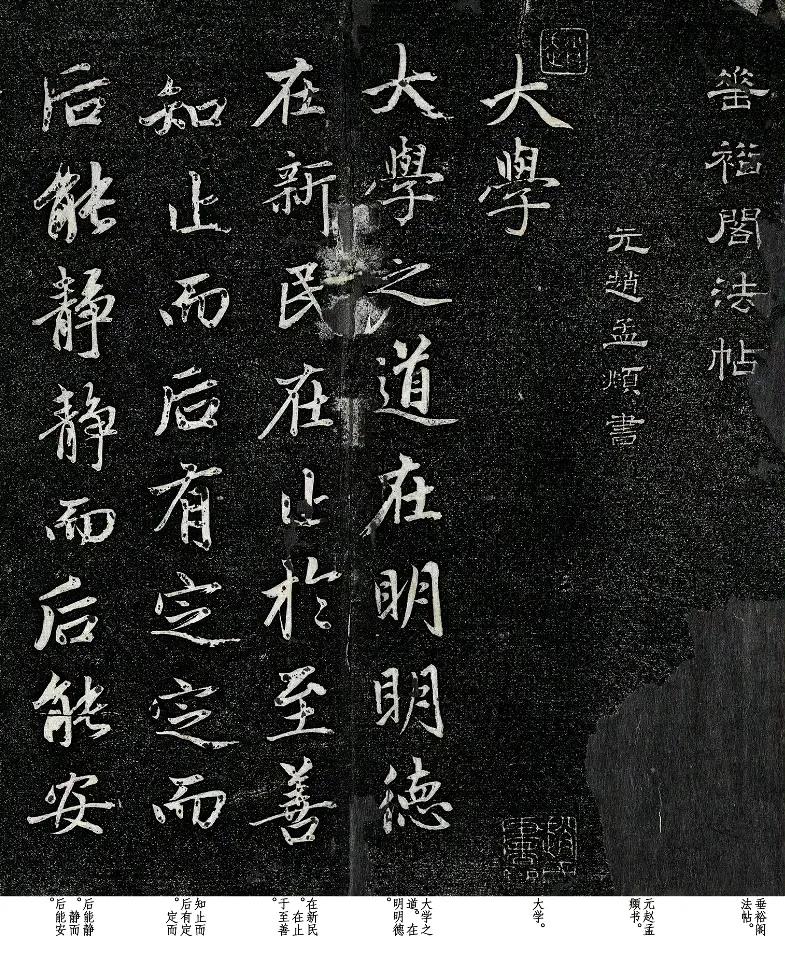 垂裕閣法帖
元趙孟頫書
大學
大學之道在明明德
在新民在止於至善
知止而后有定定而
后能静静而后能安
垂裕阁
法帖。
元赵孟
頫书。
大学。
大学之
道。在
明明德
。
在新民
。在止
于至善
。
知止而
后有定
。定而
后能静
。静而
后能安
。